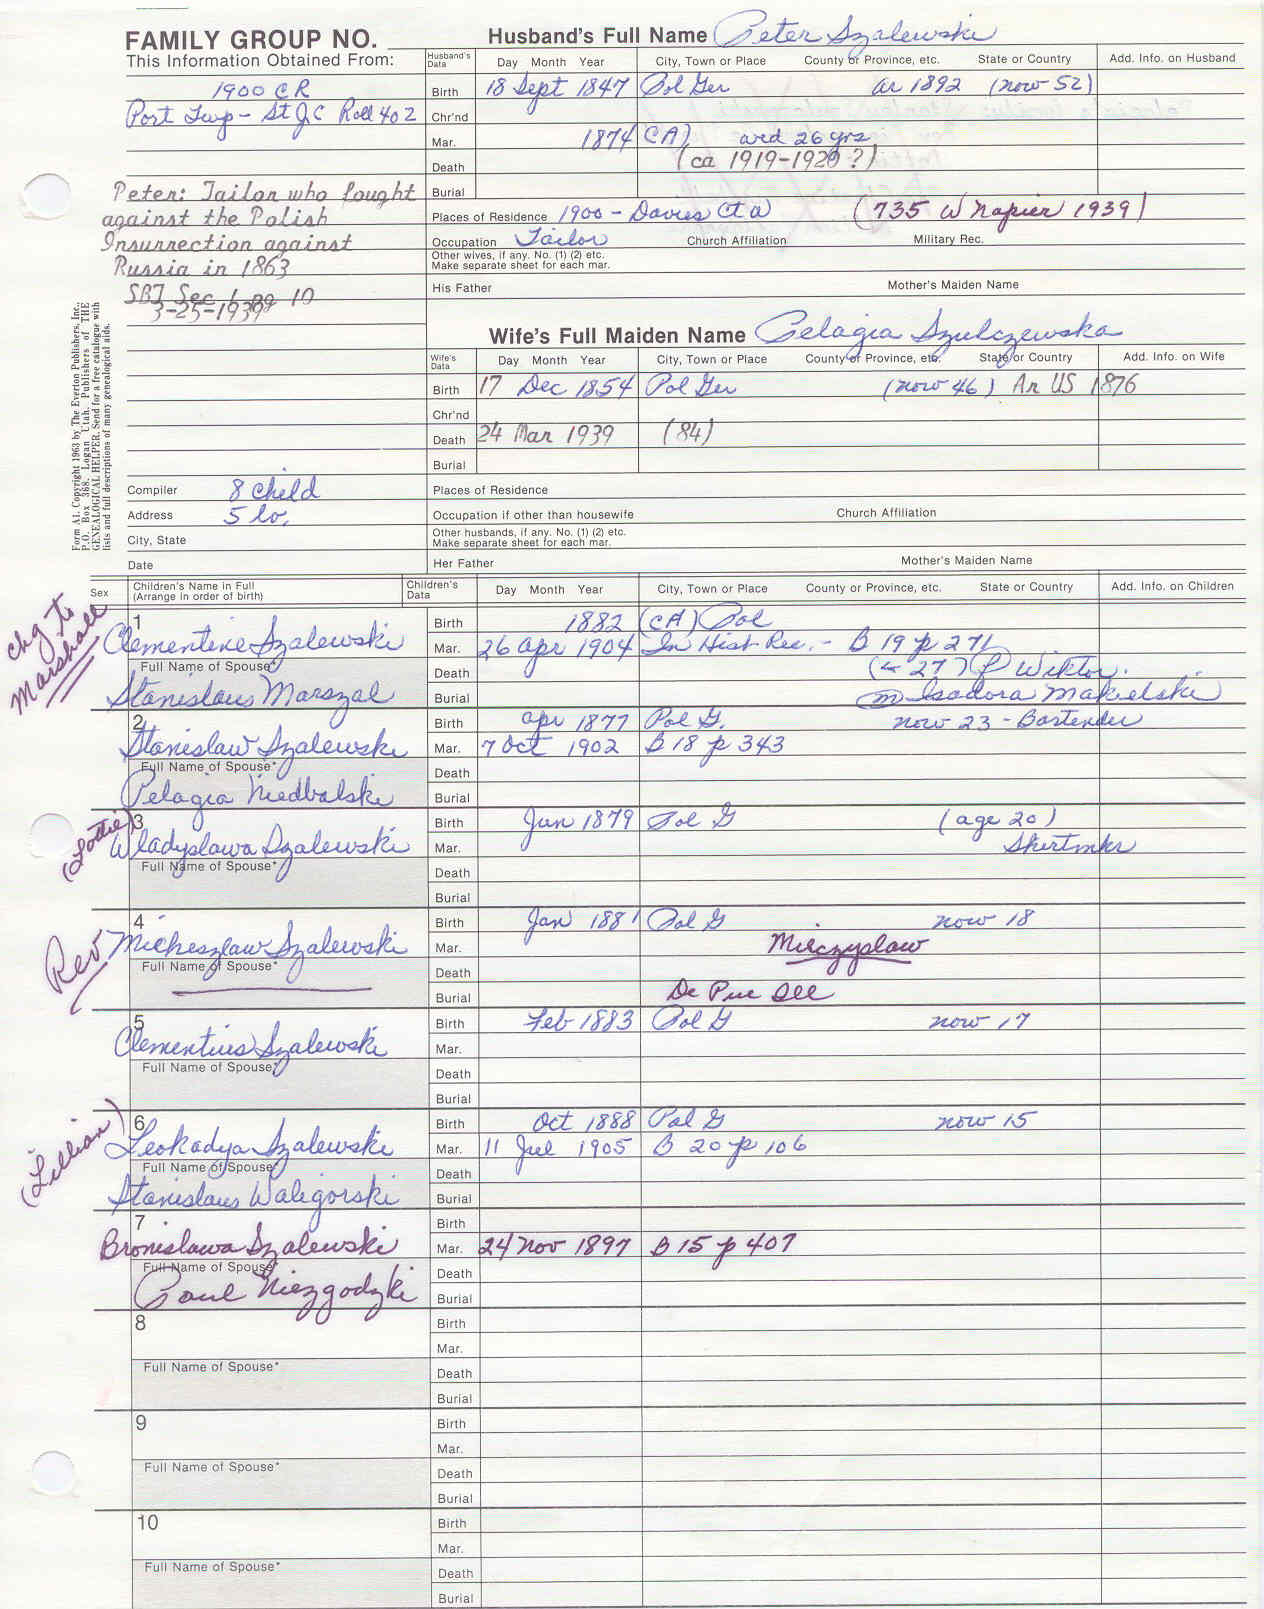 FAMILY GROUP NO.
Husband's Full Name Peter Szalewski
This Information Obtained From:
Husband's Data Day Month Year City, Town or Place County or Province, etc. State or Country Add. Info. on Husband
1900 CR
Birth 18 Sept 1847 Pol Ger ar 1892 (now 52)
Port Twp - St J.C Roll 402
Chr'nd
Mar. 1874 (CA) wed 26 yrs
Death (ca 1919-1920?)
Peter: Tailor who fought
Burial
against the Polish
Places of Residence 1900 - Davies Ct a (735 W Napier 1939)
Insurrection against
Occupation Tailor Church Affiliation Military Rec.
Russia in 1863
Other wives, if any. No. (1) (2) etc.
Make separate sheet for each mar.
SBT Sec 1 pg 10
His Father Mother's Maiden Name
3-25-1939
Form A1. Copyright 1963 by The Everton Publishers, Inc.,
P.O. Box 368, Logan Utah. Publishers of THE
GENEALOGICAL HELPER. Send for a free catalogue with
lists and full descriptions of many genealogical aids.
Wife's Full Maiden Name Pelagia Szulczewska
Wife's Data Day Month Year City, Town or Place County or Province, etc. State or Country Add. Info. on Wife
Birth 17 Dec 1854 Pol Ger (now 46) Ar US 1876
Chr'nd
Death 24 Mar 1939 (84)
Burial
Compiler 8 child
Places of Residence
Address 5 lv.
Occupation if other than housewife Church Affiliation
City, State
Other husbands, if any. No. (1) (2) etc.
Make separate sheet for each mar.
Date
Her Father Mother's Maiden Name
Sex Children's Name in Full
(Arrange in order of birth)
Children's Data Day Month Year City, Town or Place County or Province, etc. State or Country Add. Info. on Children
chg to
Marshall
1
Birth 1882 (CA) Pol
Clementine Szalewski
Mar. 26 apr 1904 In Hist Rec. - B 19 p 271
Full Name of Spouse*
Death (27) P Wiktor.
Stanislaus Marszal
Burial m Isadora Makielski
2
Birth apr 1877 Pol G. now 23 - Bartender
Stanislaw Szalewski
Mar. 7 Oct 1902 B 18 p 343
Full Name of Spouse*
Death
Pelagia Niedbalski
Burial
(Lottie)
3
Birth Jun 1879 Pol G (age 20)
Wladyslawa Szalewski
Mar. Shirtmkr
Full Name of Spouse*
Death
Burial
4
Birth Jan 1881 Pol G now 18
Rev. Micheszlaw Szalewski
Mar. Mieczyslaw
Full Name of Spouse*
Death
Burial De Pue Ill
5
Birth Feb 1883 Pol G now 17
Clementius Szalewski
Mar.
Full Name of Spouse*
Death
Burial
(Lillian)
6
Birth Oct 1888 Pol G now 15
Leokadya Szalewski
Mar. 11 Jul 1905 B 20 p 106
Full Name of Spouse*
Death
Stanislaus Waligorski
Burial
7
Birth
Bronislawa Szalewski
Mar. 24 Nov 1897 B 15 p 407
Full Name of Spouse*
Death
Paul Niezgodzki
Burial
8
Birth
Mar.
Full Name of Spouse*
Death
Burial
9
Birth
Mar.
Full Name of Spouse*
Death
Burial
10
Birth
Mar.
Full Name of Spouse*
Death
Burial